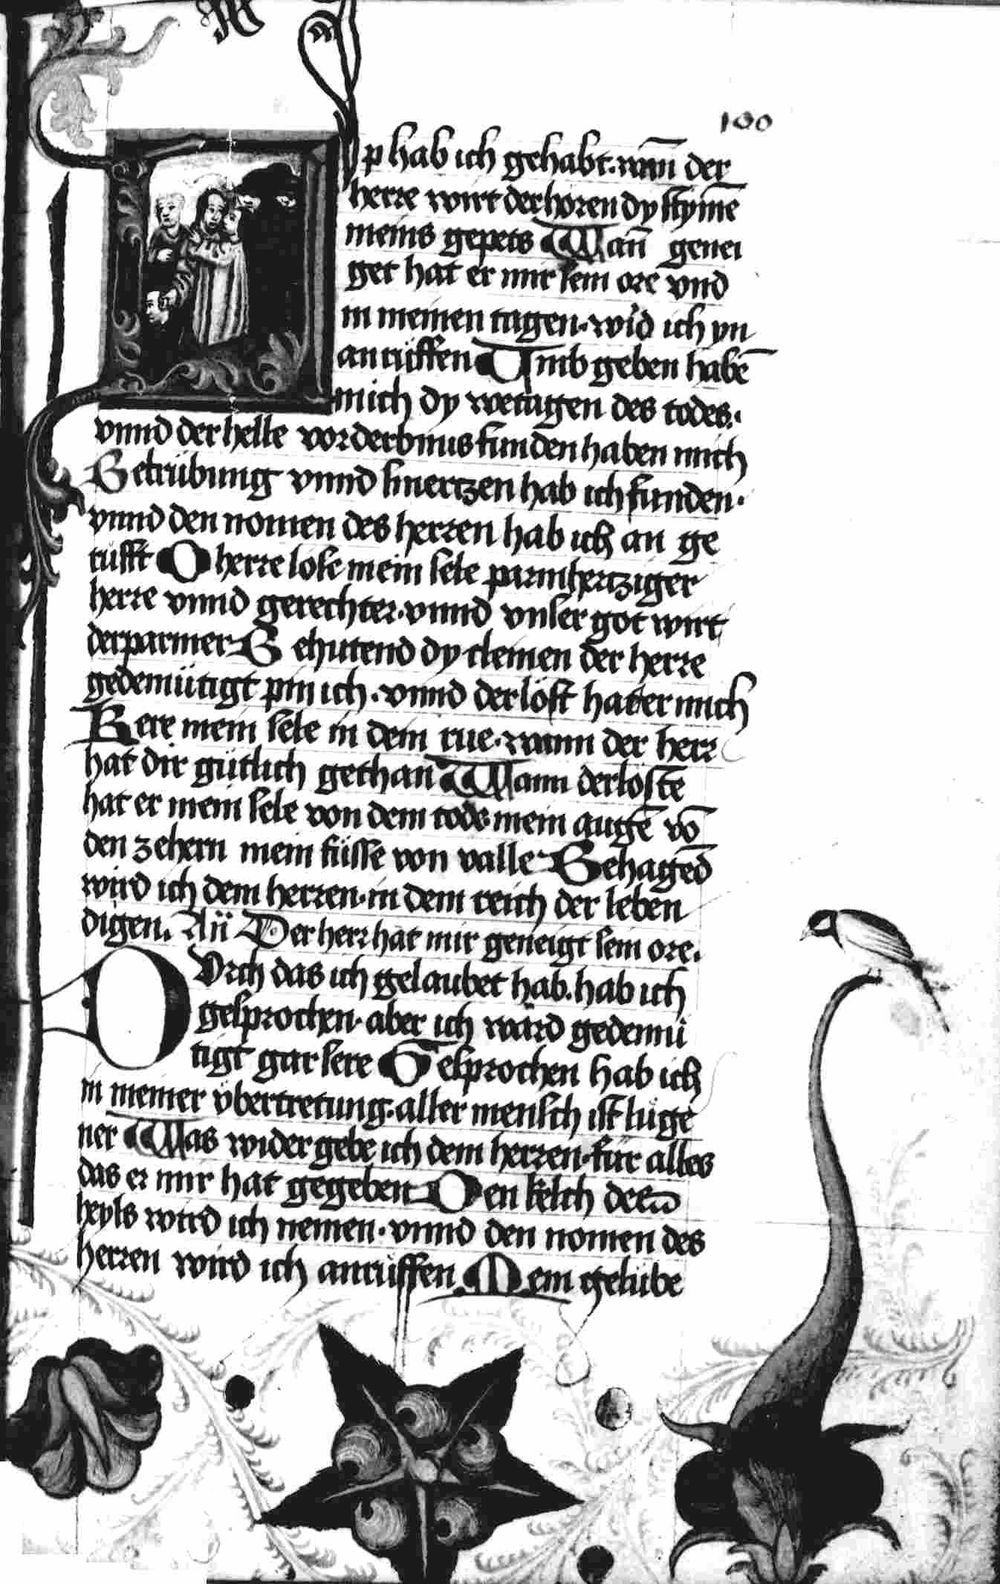 100
Lip hab ich gehabt. wan̄ der
herre wirt derhoren dy stym̄e
meins gepets Wan̄ genei
get hat er mir sein ore vnd
in meinen tagen. wi͛d ich yn
anrüffen Vmb geben habē
mich dy wetagen des todes.
vnnd der helle vorderbnus funden haben mich
Betrübung vnnd smertzen hab ich funden.
vnnd den nomen des herren hab ich an ge
rüfft O herre lose mein sele parmhertziger
herre vnnd gerechter. vnnd vnser got wirt
derparmer Behutend dy clemen der herre
gedemütigt pin ich. vnnd derlöst hat er mich
Kere mein sele in dein rue. wann der herr
hat dir gütlich gethan Wann derloste
hat er mein sele von dem tode mein augē vō
den zehern mein füsse von valle Behagēd
wird ich dem herren. in dem reich der leben
digen. An̄ Der herr hat mir geneigt sein ore.
Dvrch das ich gelaubet hab. hab ich
gesprochen. aber ich ward gedemü
tigt gar sere Gesprochen hab ich
in meiner vbertretung. aller mensch ist lüge
ner Was wider gebe ich dem herren. für alles
das er mir hat gegeben Den kelch des
heyls wird ich nemen. vnnd den nomen des
herren wird ich anrüffen Mein gelübe